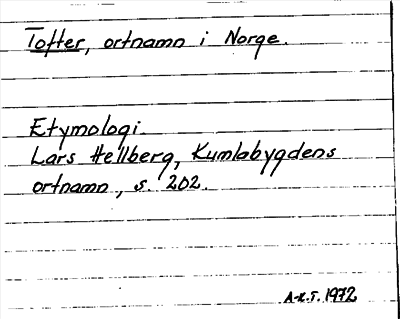 Tofter, ortnamn i Norge.
Etymologi.
Lars Hellberg, Kumlabygdens
ortnamn, s. 202.
A-K.T. 1972